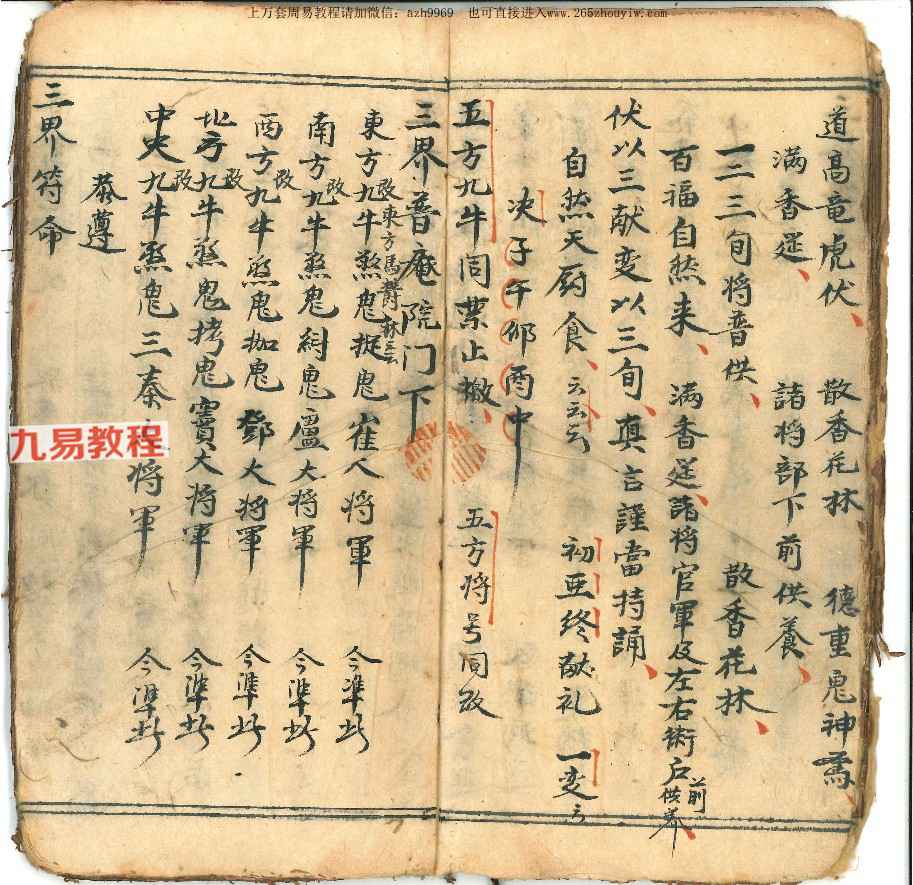 上万套周易教程请加微信：azh9969 也可直接进入www.265zhouyiw.com
道高竜虎伏、 散香花林 德重鬼神
满香筵、 諸将部下前供養、
一二三旬将普供、 散香花林、
百福自然来、 满香筵、諸将官軍及左右衛 前供养、
伏以三献变以三旬、真言謹當持誦、
自然天厨食、云云云 初亚终献礼 一变
决子午 酉中
五方九牛同禁止 五方将号同改
三界普庵院门下
東方九牛煞鬼捉鬼崔大将軍 今準此
改東方馬
南方九牛煞鬼 鬼盧大将軍 今準此
改
西方九牛煞鬼枷鬼鄧大将軍 今準此
改
北方九牛煞鬼拷鬼竇大将軍 今準此
改
中央九牛煞鬼三秦 将軍 今準此
改
恭遵
三界符命
九易教程